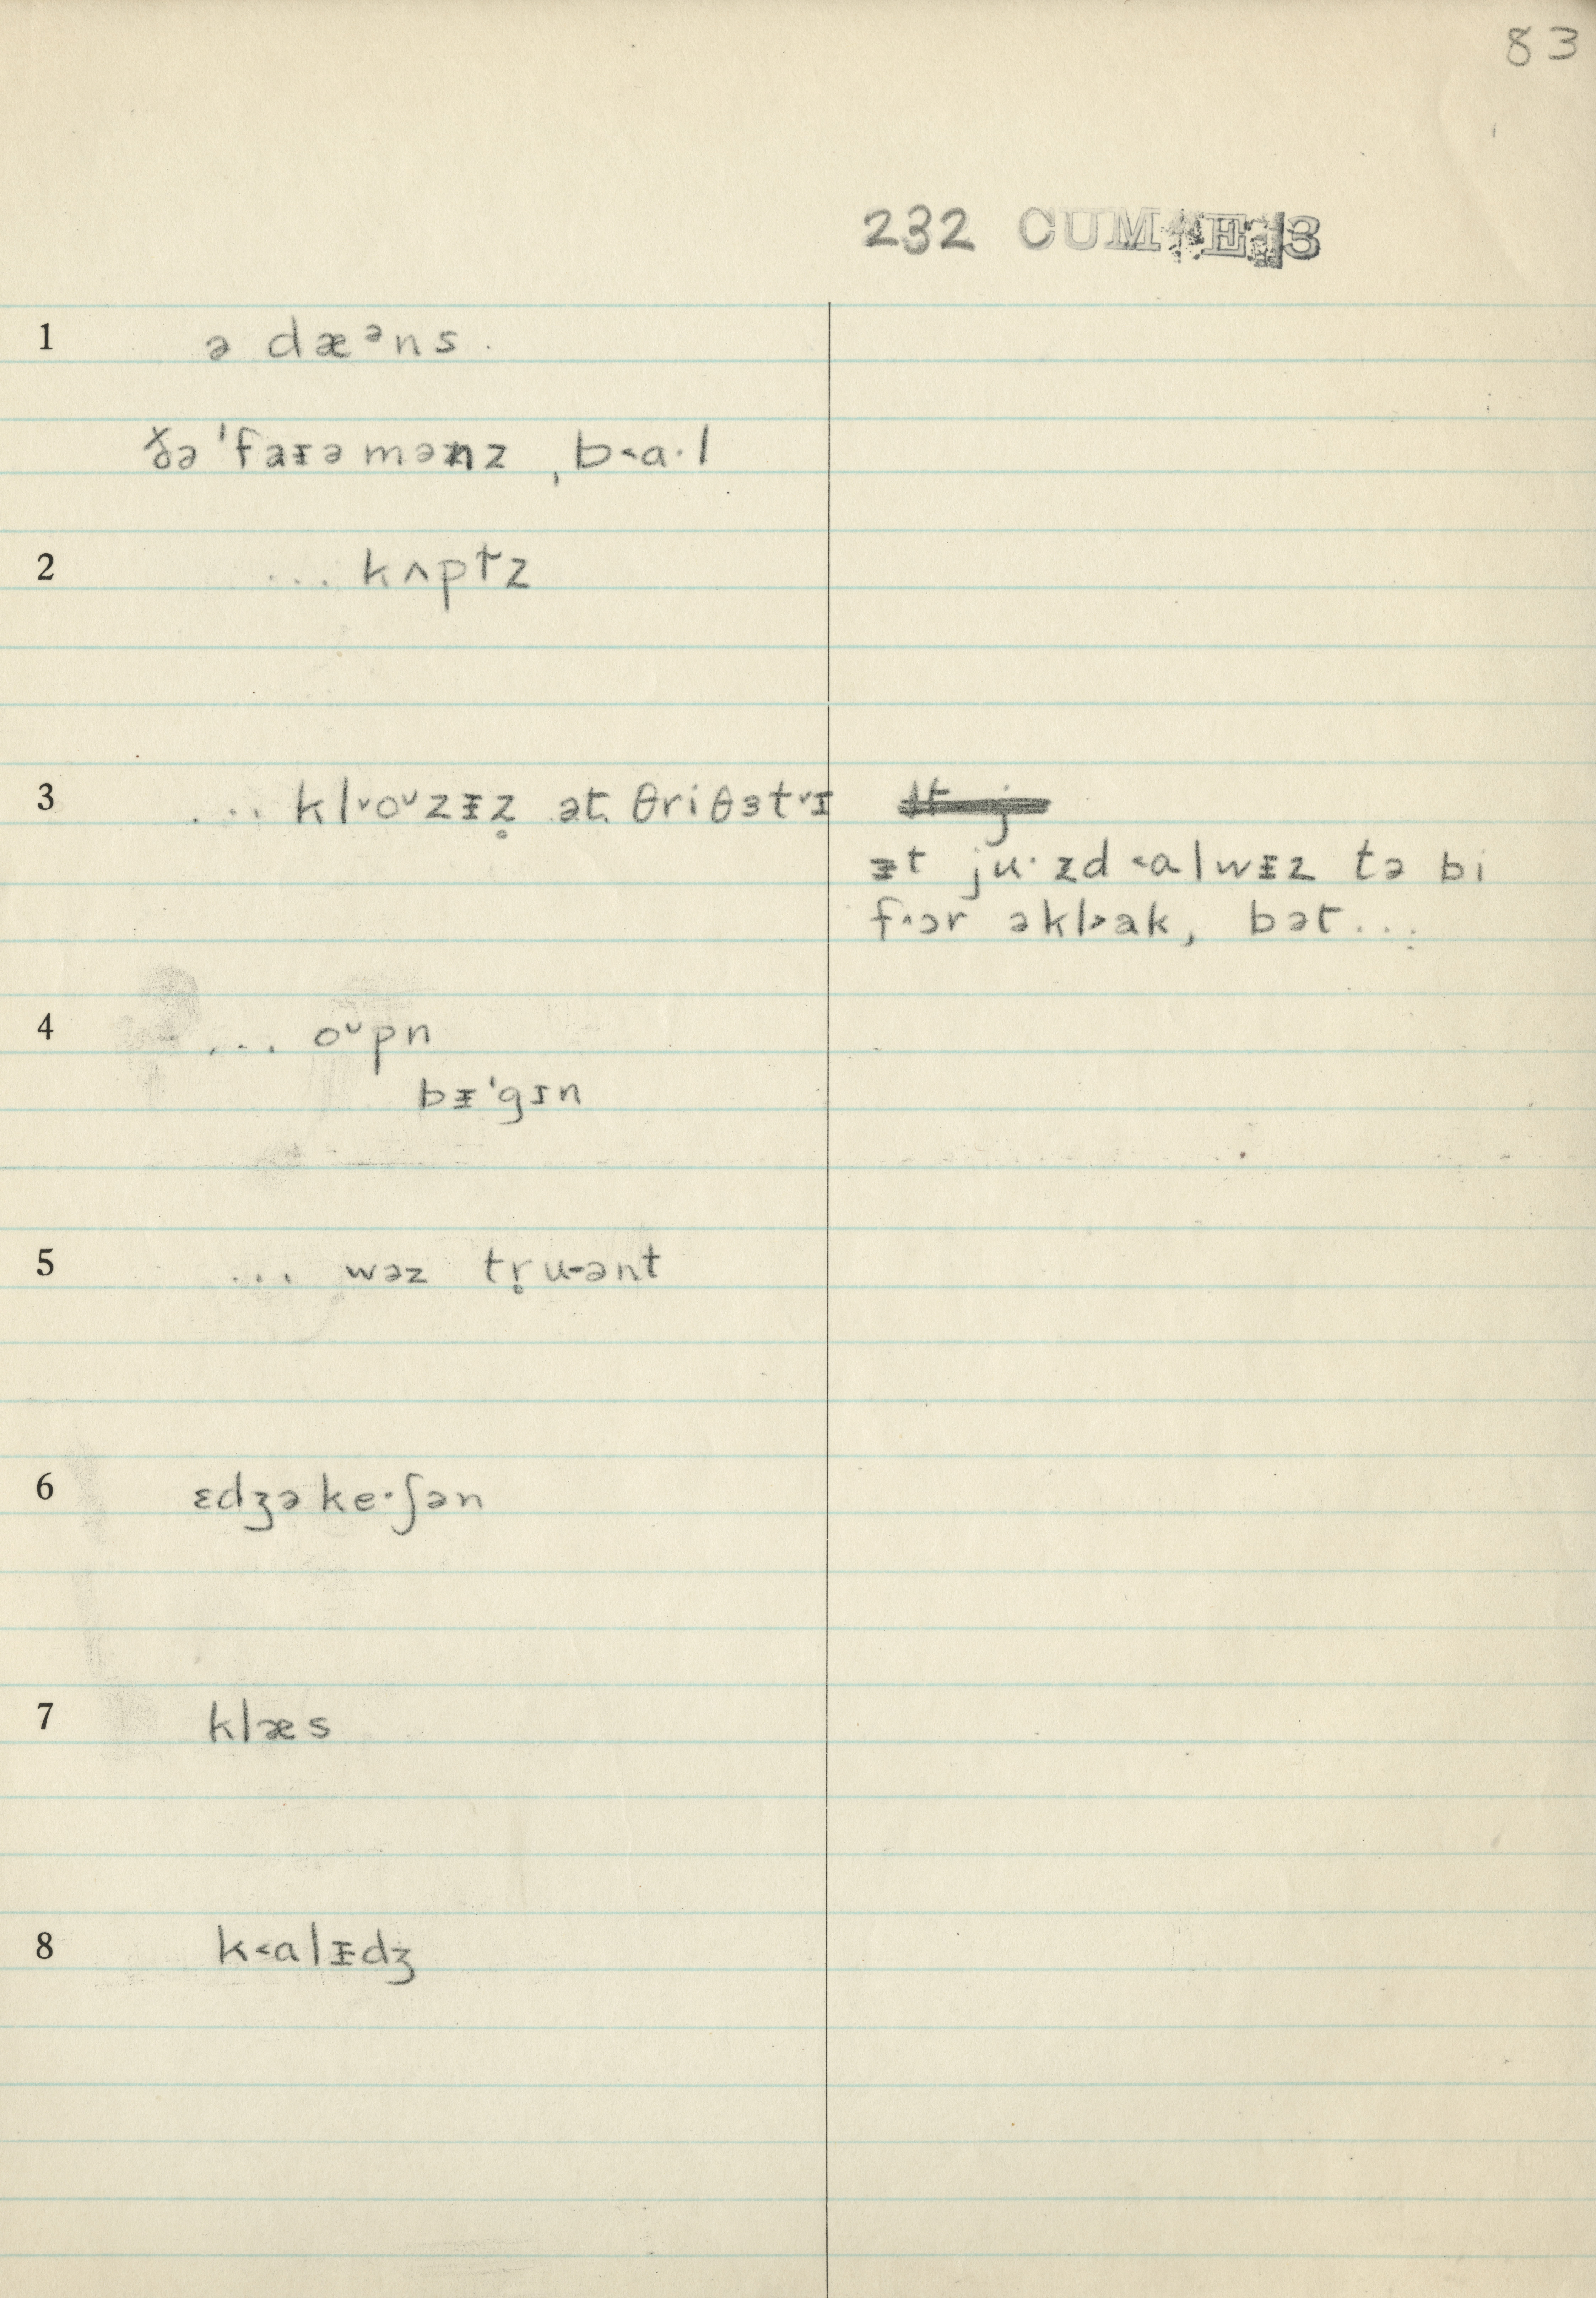 83
232 CUM E 3
1 ə dæᵊns.
ðə ˈfaɪəmənz ˌb˂a·l
2 ... kʌpt̃z
3 ... kl˅oᶷzᵻz̥ ət θriθɜt˅ɪ
ᵻt ju·zd ˂alwᵻz tə bi
f˄ɔr əkl˃ak, bət...
4 ... oᶷpn
bᵻˈgɪn
5 ... wəz tr̥u-ənt
6 ɛdʒəke·ʃən
7 klæs
8 k˂alᵻdʒ